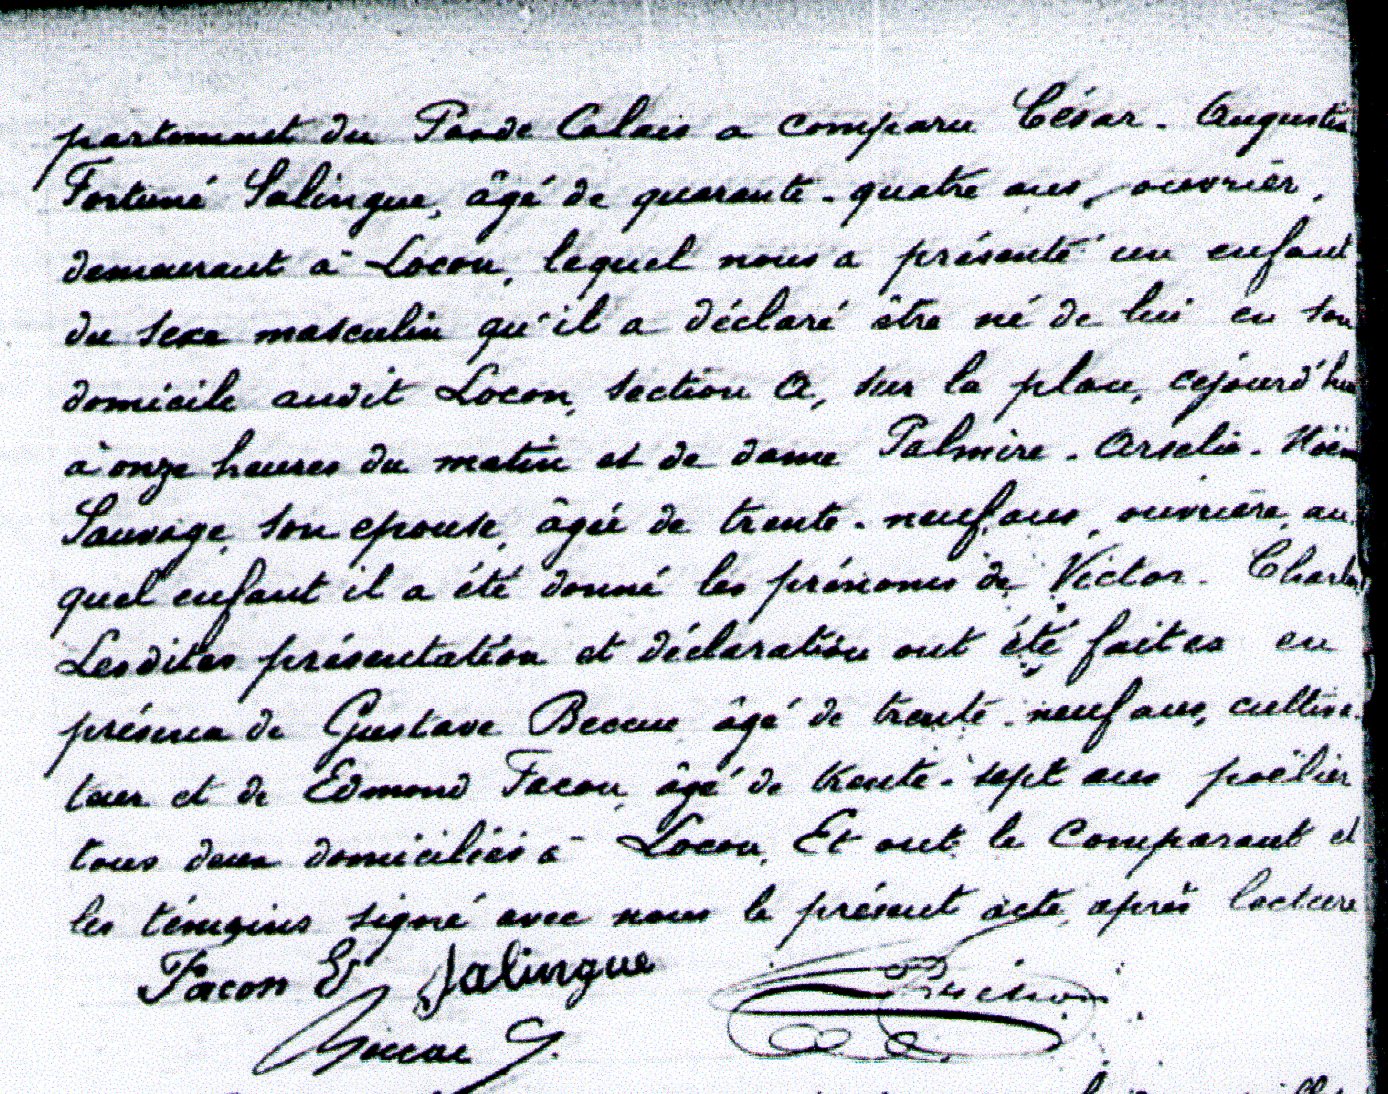 partement du Pas de Calais a comparu César-Augustin
Fortuné Salingue, âgé de quarante-quatre ans, ouvrier,
demeurant à Locon, lequel nous a présenté un enfant
du sexe masculin qu'il a déclaré être né de lui en son
domicile audit Locon, section A, sur la place, cejourd'hui
à onze heures du matin et de dame Palmire-Arsélie-
Sauvage, son épouse, âgée de trente-neuf ans, ouvrière, au
quel enfant il a été donné les prénoms de Victor-Charles
Lesdites présentation et déclaration ont été faites en
présence de Gustave Beccue âgé de trente-neuf ans, cultiva-
teur et de Edmond Facon, âgé de trente-sept ans poëlier
tous deux domiciliés à Locon. Et ont le comparant et
les témoins signé avec nous le présent acte, après lecture
Facon E Salingue
G.